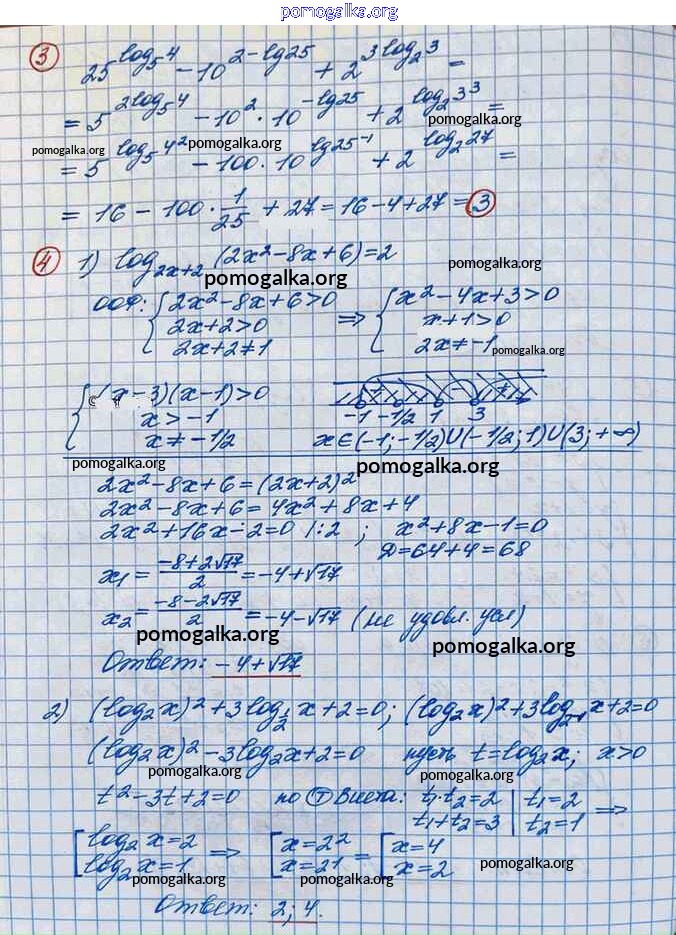 pomogalka.org
③ 25^(log₅4) − 10^(2−lg25) + 2^(3log₂3) =
= 5^(2log₅4) − 10² · 10^(−lg25) + 2^(log₂3³) =
pomogalka.org pomogalka.org pomogalka.org
= 5^(log₅4²) − 100 · 10^(lg25⁻¹) + 2^(log₂27) =
= 16 − 100 · 1/25 + 27 = 16 − 4 + 27 = 3
④ 1) log₂ₓ₊₂ (2x² − 8x + 6) = 2
pomogalka.org pomogalka.org
ООФ: { 2x² − 8x + 6 > 0 ⇒ { x² − 4x + 3 > 0
2x + 2 > 0 x + 1 > 0
2x + 2 ≠ 1 2x ≠ −1
pomogalka.org
{ (x − 3)(x − 1) > 0
x > −1 −1 −1/2 1 3
x ≠ −1/2 x ∈ (−1; −1/2) ∪ (−1/2; 1) ∪ (3; +∞)
pomogalka.org
2x² − 8x + 6 = (2x + 2)²
2x² − 8x + 6 = 4x² + 8x + 4
2x² + 16x − 2 = 0 /:2 ; x² + 8x − 1 = 0
D = 64 + 4 = 68
x₁ = (−8 + 2√17)/2 = −4 + √17
x₂ = (−8 − 2√17)/2 = −4 − √17 (не удовл. усл)
pomogalka.org pomogalka.org
Ответ: −4 + √17
2) (log₂x)² + 3log_½ x + 2 = 0; (log₂x)² + 3log₂₋₁ x + 2 = 0
(log₂x)² − 3log₂x + 2 = 0 пусть t = log₂x; x > 0
pomogalka.org pomogalka.org
t² − 3t + 2 = 0 по Ⓣ Виета: t₁·t₂ = 2 | t₁ = 2 ⇒
t₁ + t₂ = 3 | t₂ = 1
[ log₂x = 2 ⇒ [ x = 2² = [ x = 4
log₂x = 1 x = 2¹ x = 2
pomogalka.org pomogalka.org pomogalka.org
Ответ: 2; 4.